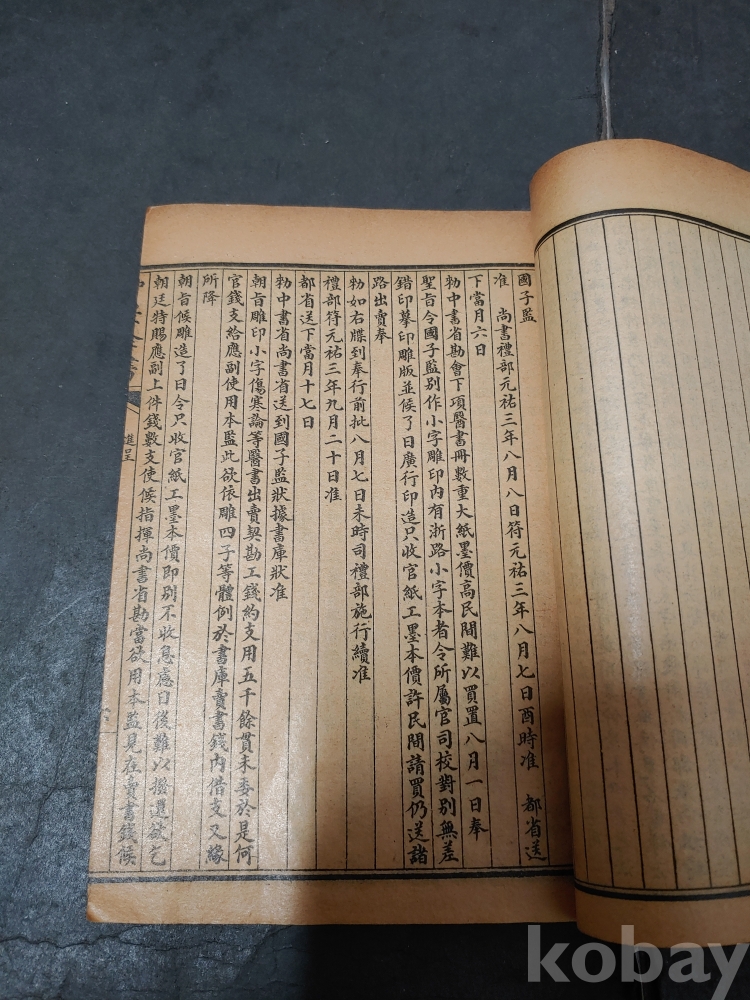 國子監
准　尚書禮部元祐三年八月八日符元祐三年八月七日酉時准　都省送
下當月六日
勑中書省勘會下項醫書冊數重大紙墨價高民間難以買置八月一日奉
聖旨令國子監別作小字雕印內有浙路小字本者令所屬官司校對別無差
錯即摹印雕版並候了日廣行印造只收官紙工墨本價許民間請買仍送諸
路出賣奉
勑如右牒到奉行前批八月七日未時司禮部施行續准
禮部符元祐三年九月二十日准
都省送下當月十七日
勑中書省尚書省送到國子監狀據書庫狀准
朝旨雕印小字傷寒論等醫書出賣契勘工錢約支用五千餘貫未委於是何
官錢支給應副使用本監比欲依雕四子等體例於書庫賣書錢內借支又緣
所降
朝旨候雕造了日令只收官紙工墨本價即別不收息慮日後難以撥還欲乞
朝廷特賜應副上件錢數支使候指揮尚書省勘當欲用本監見在賣書錢候
進呈
kobay